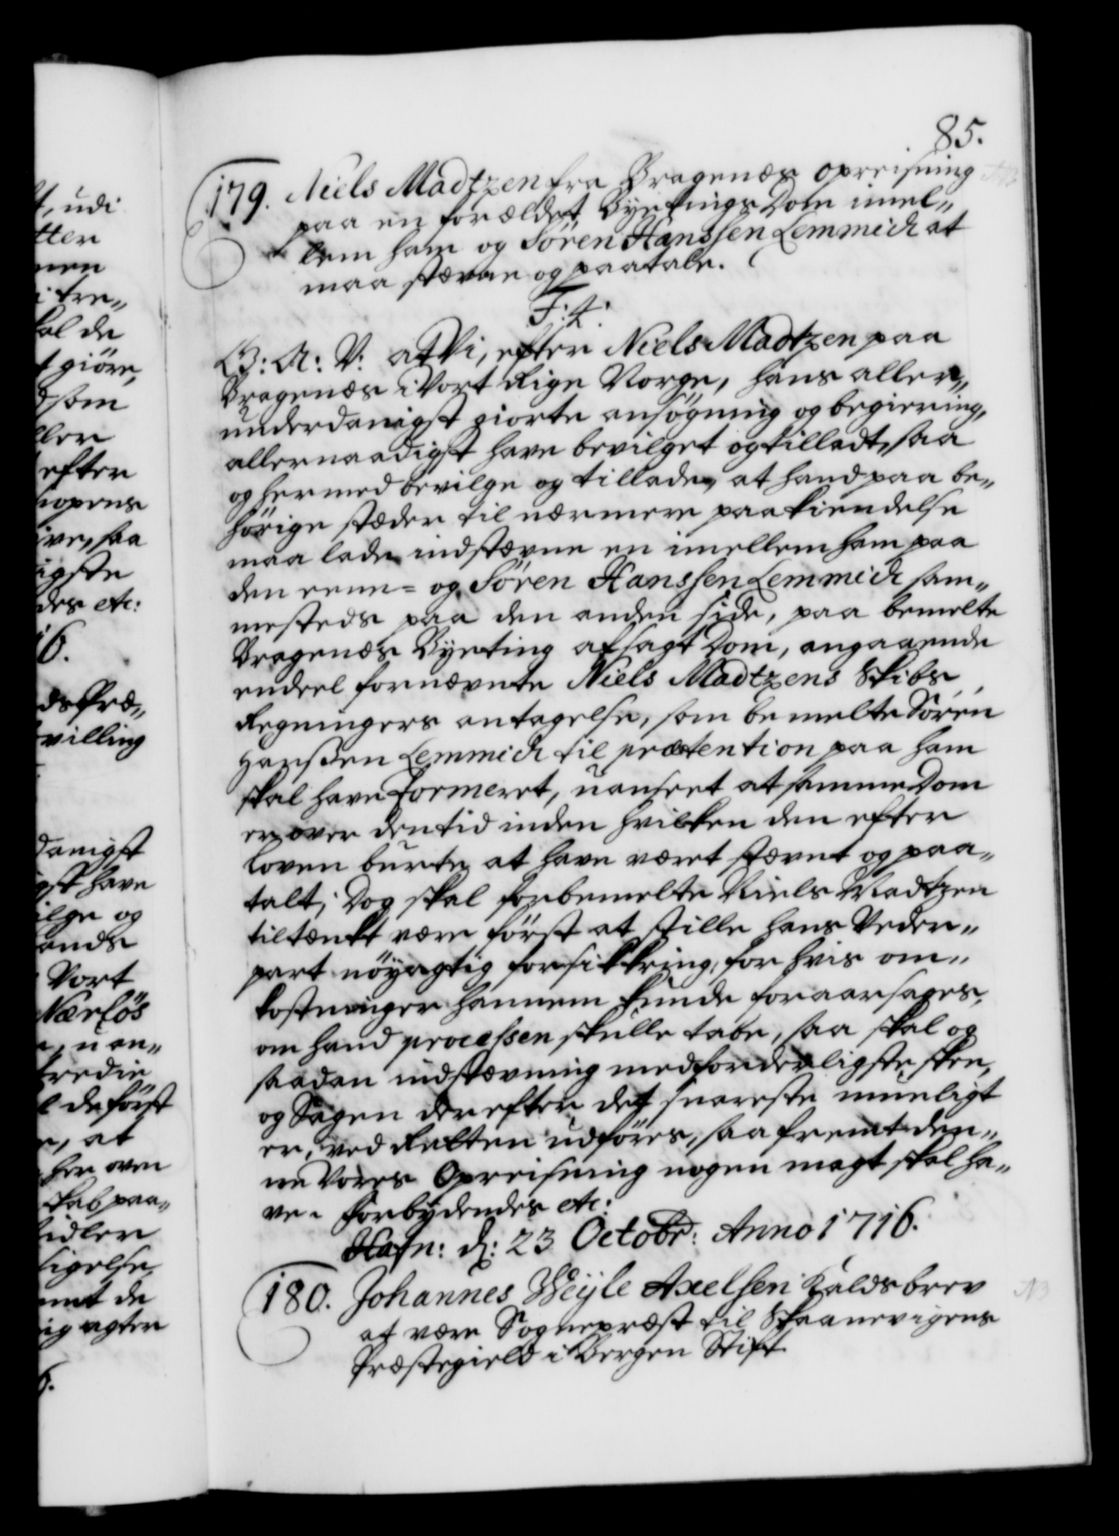 85.
179. Niels Madtzen fra Bragenæs Opreisning
paa en forældet Byetings Dom imel„
lem ham og Søren Hanssen Lemmich at
maa stævne og paatale.
F: 4:
G: A: V: at Vi, efter Niels Madtzen paa
Bragenæs i Vort Rige Norge, hans aller„
underdanigst giorte ansøgning og begiering,
allernaadigst have bevilget og tilladt, saa
og hermed bevilge og tillade, at hand paa be„
hörige stæder til nærmere paakiendelse
maa lade indstævne en imellem ham paa
den eene= og Søren Hanssen Lemmich sam„
mesteds paa den anden side, paa bemelte
Bragenæs Byeting afsagt Dom, angaaende
endeel fornævnte Niels Madtzens Skibs
Regningers antagelse, som bemelte Sören
Hanssen Lemmich til prætention paa ham
skal have formeret, uanseet at samme Dom
er over den tid inden hvilken den efter
Loven burte at have været stævnt og paa„
talt; Dog skal forbemelte Niels Madtzen
tiltænkt være först at stille hans Veder„
part nöyagtig forsikkring, for hvis om„
kostninger hannem kunde foraarsages,
om hand processen skulle tabe, saa skal og
saadan indstævning med forderligste skee,
og Sagen derefter det snareste mueligt
er, ved Retten udföres, saa fremt den„
ne Vores Opreisning nogen magt skal ha„
ve. Forbydendes etc:
Hafn: d: 23 Octobr: Anno 1716.
180. Johannes Weyle Axelsen Kaldsbrev
at være Sognepræst til Skaanevigens
Præstegield i Bergen Stift